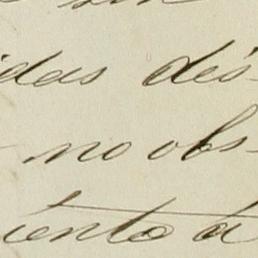 idas des-
no obs-
iento á